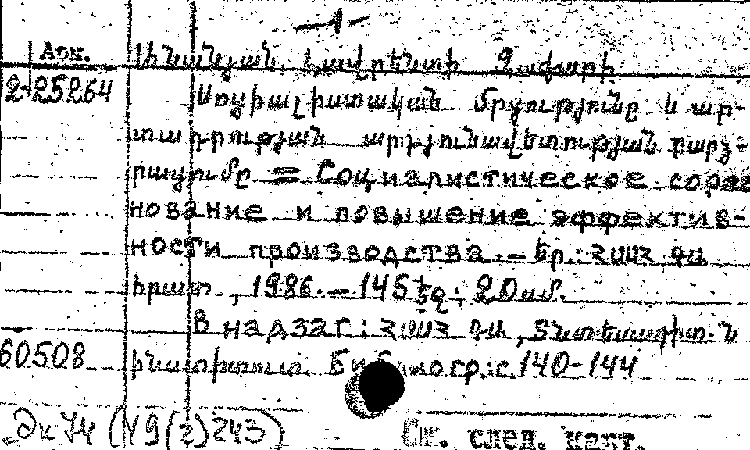 1
Арм. Սինանյան, Լավրենտի Զաքարի
2-25264 Սոցիալիստական մրցությունը և ար-
տադրության արդյունավետության բարձ-
րացումը = Социалистическое сорев-
нование и повышение эффектив-
ности производства. — Եր.: ՀՍՍՀ ԳԱ
հրատ, 1986. — 145 էջ; 20 սմ.
В надзаг: ՀՍՍՀ ԳԱ, Տնտեսագիտ-ն
60508 ինստիտուտ. Библиогр.: с. 140-144
Էк 74 (49(2)243)
См. след. карт.